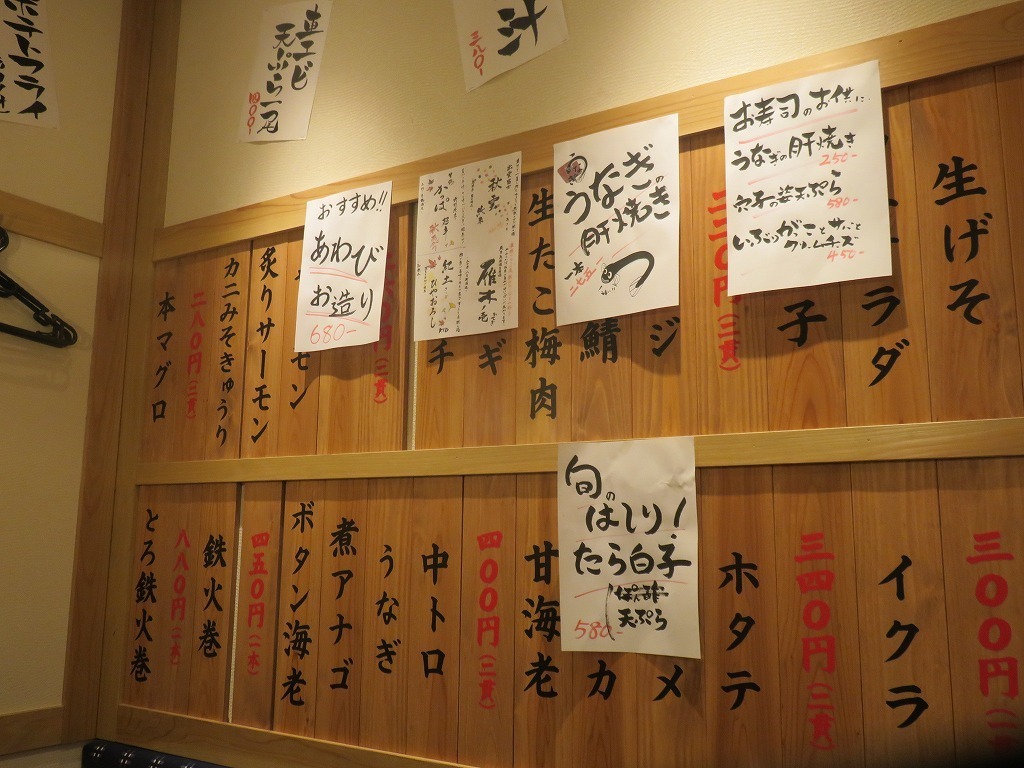 ポテトフライ
直エビ
天ぷら一尾
四〇〇-
汁
三八〇-
お寿司のお供に
うなぎの肝焼き
250-
穴子の姿天ぷら
580-
クリームチーズ
450-
うなぎの
肝焼き
おすすめ!!
あわび
お造り
680-
秋
かっぱ
雁木
ひやおろし
生げそ
ラダ
子
三三〇円(二貫)
ジ
鯖
生たこ梅肉
ギ
チ
モン
炙りサーモン
カニみそきゅうり
二八〇円(二貫)
本マグロ
旬のはしり!
たら白子
ぽん酢
天ぷら
580-
三〇〇円
イクラ
三四〇円(二貫)
ホタテ
メ
カ
甘海老
四〇〇円(二貫)
中トロ
うなぎ
煮アナゴ
ボタン海老
四五〇円(一本)
鉄火巻
八八〇円(一本)
とろ鉄火巻